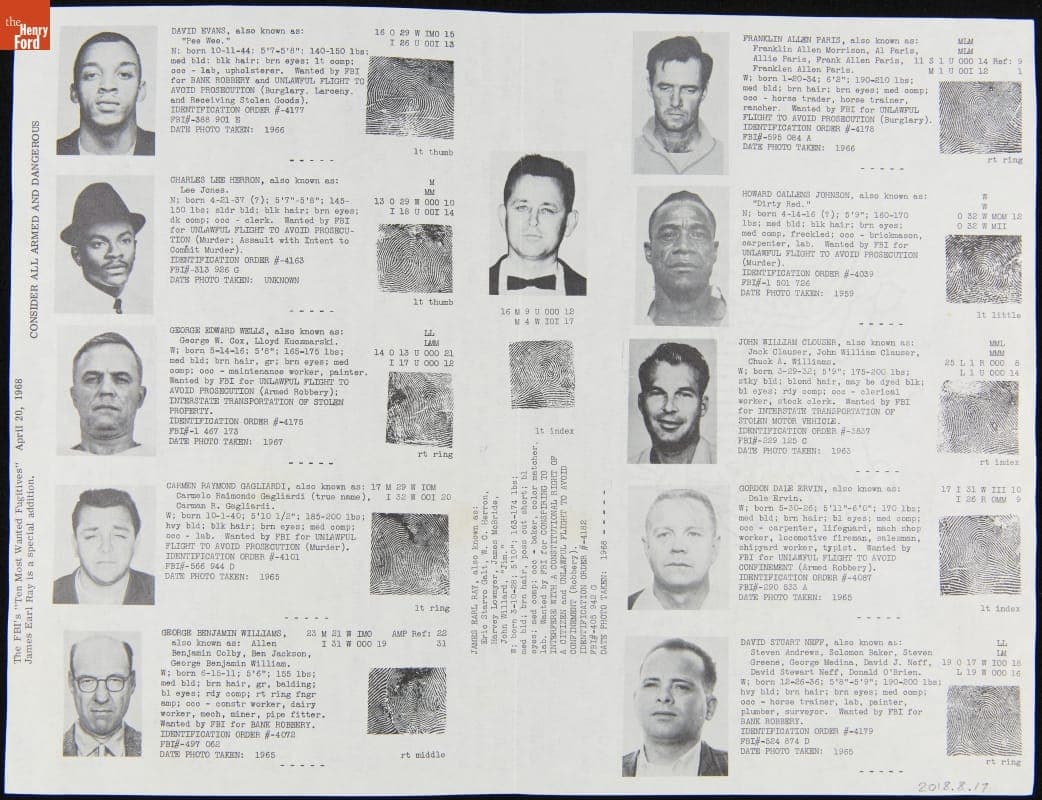 the
Henry
Ford
CONSIDER ALL ARMED AND DANGEROUS
The FBI's "Ten Most Wanted Fugitives" April 20, 1968
James Earl Ray is a special addition.
DAVID EVANS, also known as:
"Pee Wee."
N: born 10-11-44: 5'7-5'8": 140-150 lbs:
med bld: blk hair: brn eyes: lt comp:
occ - lab, upholsterer. Wanted by FBI
for BANK ROBBERY and UNLAWFUL FLIGHT TO
AVOID PROSECUTION (Burglary, Larceny,
and Receiving Stolen Goods).
IDENTIFICATION ORDER #-4177
FBI#-388 901 E
DATE PHOTO TAKEN: 1966
16 O 29 W IMO 15
I 26 U OOI 13
lt thumb
- - - - -
CHARLES LEE HERRON, also known as:
Lee Jones.
N: born 4-21-37 (?); 5'7"-5'8"; 145-
150 lbs; sldr bld; blk hair; brn eyes;
dk comp; occ - clerk. Wanted by FBI
for UNLAWFUL FLIGHT TO AVOID PROSECU-
TION (Murder; Assault with Intent to
Commit Murder).
IDENTIFICATION ORDER #-4163
FBI#-313 926 G
DATE PHOTO TAKEN: UNKNOWN
M
MM
13 O 29 W OOO 10
I 18 U OOI 14
lt thumb
- - - - -
GEORGE EDWARD WELLS, also known as:
George W. Cox, Lloyd Kucsmarski.
W; born 5-14-16; 5'8"; 165-175 lbs;
med bld; brn hair, gr; brn eyes; med
comp; occ - maintenance worker, painter.
Wanted by FBI for UNLAWFUL FLIGHT TO
AVOID PROSECUTION (Armed Robbery);
INTERSTATE TRANSPORTATION OF STOLEN
PROPERTY.
IDENTIFICATION ORDER #-4175
FBI#-1 467 173
DATE PHOTO TAKEN: 1967
LL
LMM
14 O 13 U OOO 21
I 17 U OOO 12
rt ring
- - - - -
CARMEN RAYMOND GAGLIARDI, also known as:
Carmelo Raimondo Gagliardi (true name),
Carman R. Gagliardi.
W; born 10-1-40; 5'10 1/2"; 185-200 lbs;
hvy bld; blk hair; brn eyes; med comp;
occ - lab. Wanted by FBI for UNLAWFUL
FLIGHT TO AVOID PROSECUTION (Murder).
IDENTIFICATION ORDER #-4101
FBI#-566 944 D
DATE PHOTO TAKEN: 1965
17 M 29 W IOM
I 32 W OOI 20
lt ring
- - - - -
GEORGE BENJAMIN WILLIAMS,
also known as: Allen
Benjamin Colby, Ben Jackson,
George Benjamin William.
W; born 6-15-11; 5'6"; 155 lbs;
med bld; brn hair, gr, balding;
bl eyes; rdy comp; rt ring fngr
amp; occ - constr worker, dairy
worker, mech, miner, pipe fitter.
Wanted by FBI for BANK ROBBERY.
IDENTIFICATION ORDER #-4072
FBI#-497 062
DATE PHOTO TAKEN: 1965
23 M 21 W IMO AMP Ref: 22
I 31 W OOO 19 31
rt middle
- - - - -
16 M 9 U OOO 12
M 4 W IOI 17
lt index
JAMES EARL RAY, also known as:
Eric Starvo Galt, W. C. Herron,
Harvey Lowmyer, James McBride,
John Willard, "Jim."
W; born 3-10-28; 5'10"; 163-174 lbs;
med bld; brn hair, poss cut short; bl
eyes; med comp; occ - baker, color matcher,
lab. Wanted by FBI for CONSPIRING TO
INTERFERE WITH A CONSTITUTIONAL RIGHT OF
A CITIZEN and UNLAWFUL FLIGHT TO AVOID
CONFINEMENT (Robbery).
IDENTIFICATION ORDER #-4182
FBI#-405 942 G
DATE PHOTO TAKEN: 1968
- - - - -
FRANKLIN ALLEN PARIS, also known as:
Franklin Allen Morrison, Al Paris,
Allie Paris, Frank Allen Paris,
Franklen Allen Paris.
W; born 1-20-34; 6'2"; 190-210 lbs;
med bld; brn hair; brn eyes; med comp;
occ - horse trader, horse trainer,
rancher. Wanted by FBI for UNLAWFUL
FLIGHT TO AVOID PROSECUTION (Burglary).
IDENTIFICATION ORDER #-4178
FBI#-595 084 A
DATE PHOTO TAKEN: 1966
MLM
MLM
11 S 1 U OOO 14 Ref: 9
M 1 U OOI 12 1
rt ring
- - - - -
HOWARD CALLENS JOHNSON, also known as:
"Dirty Red."
N; born 4-14-16 (?); 5'9"; 160-170
lbs; med bld; blk hair; brn eyes;
med comp, freckled; occ - brickmason,
carpenter, lab. Wanted by FBI for
UNLAWFUL FLIGHT TO AVOID PROSECUTION
(Murder).
IDENTIFICATION ORDER #-4039
FBI#-1 501 726
DATE PHOTO TAKEN: 1959
W
W
O 32 W MOM 12
O 32 W MII
lt little
- - - - -
JOHN WILLIAM CLOUSER, also known as:
Jack Clouser, John William Clauser,
Chuck A. Williams.
W; born 3-29-32; 5'9"; 175-200 lbs;
stky bld; blond hair, may be dyed blk;
bl eyes; rdy comp; occ - clerical
worker, stock clerk. Wanted by FBI
for INTERSTATE TRANSPORTATION OF
STOLEN MOTOR VEHICLE.
IDENTIFICATION ORDER #-3837
FBI#-229 125 C
DATE PHOTO TAKEN: 1963
MML
MMM
25 L 1 R OOO 8
L 1 U OOO 14
rt index
- - - - -
GORDON DALE ERVIN, also known as:
Dale Ervin.
W; born 5-30-26; 5'11"-6'0"; 170 lbs;
med bld; brn hair; bl eyes; med comp;
occ - carpenter, lifeguard, mach shop
worker, locomotive fireman, salesman,
shipyard worker, typist. Wanted by
FBI for UNLAWFUL FLIGHT TO AVOID
CONFINEMENT (Armed Robbery).
IDENTIFICATION ORDER #-4087
FBI#-290 533 A
DATE PHOTO TAKEN: 1965
17 I 31 W III 10
I 26 R OMM 9
lt index
- - - - -
DAVID STUART NEFF, also known as:
Steven Andrews, Solomon Baker, Steven
Greene, George Medina, David J. Neff,
David Stewart Neff, Donald O'Brien.
W; born 12-26-36; 5'8"-5'9"; 190-200 lbs;
hvy bld; brn hair; brn eyes; med comp;
occ - horse trainer, lab, painter,
plumber, surveyor. Wanted by FBI for
BANK ROBBERY.
IDENTIFICATION ORDER #-4179
FBI#-524 874 D
DATE PHOTO TAKEN: 1965
LL
LM
19 O 17 W IOO 18
L 19 W OOO 16
rt ring
- - - - -
2018.8.17